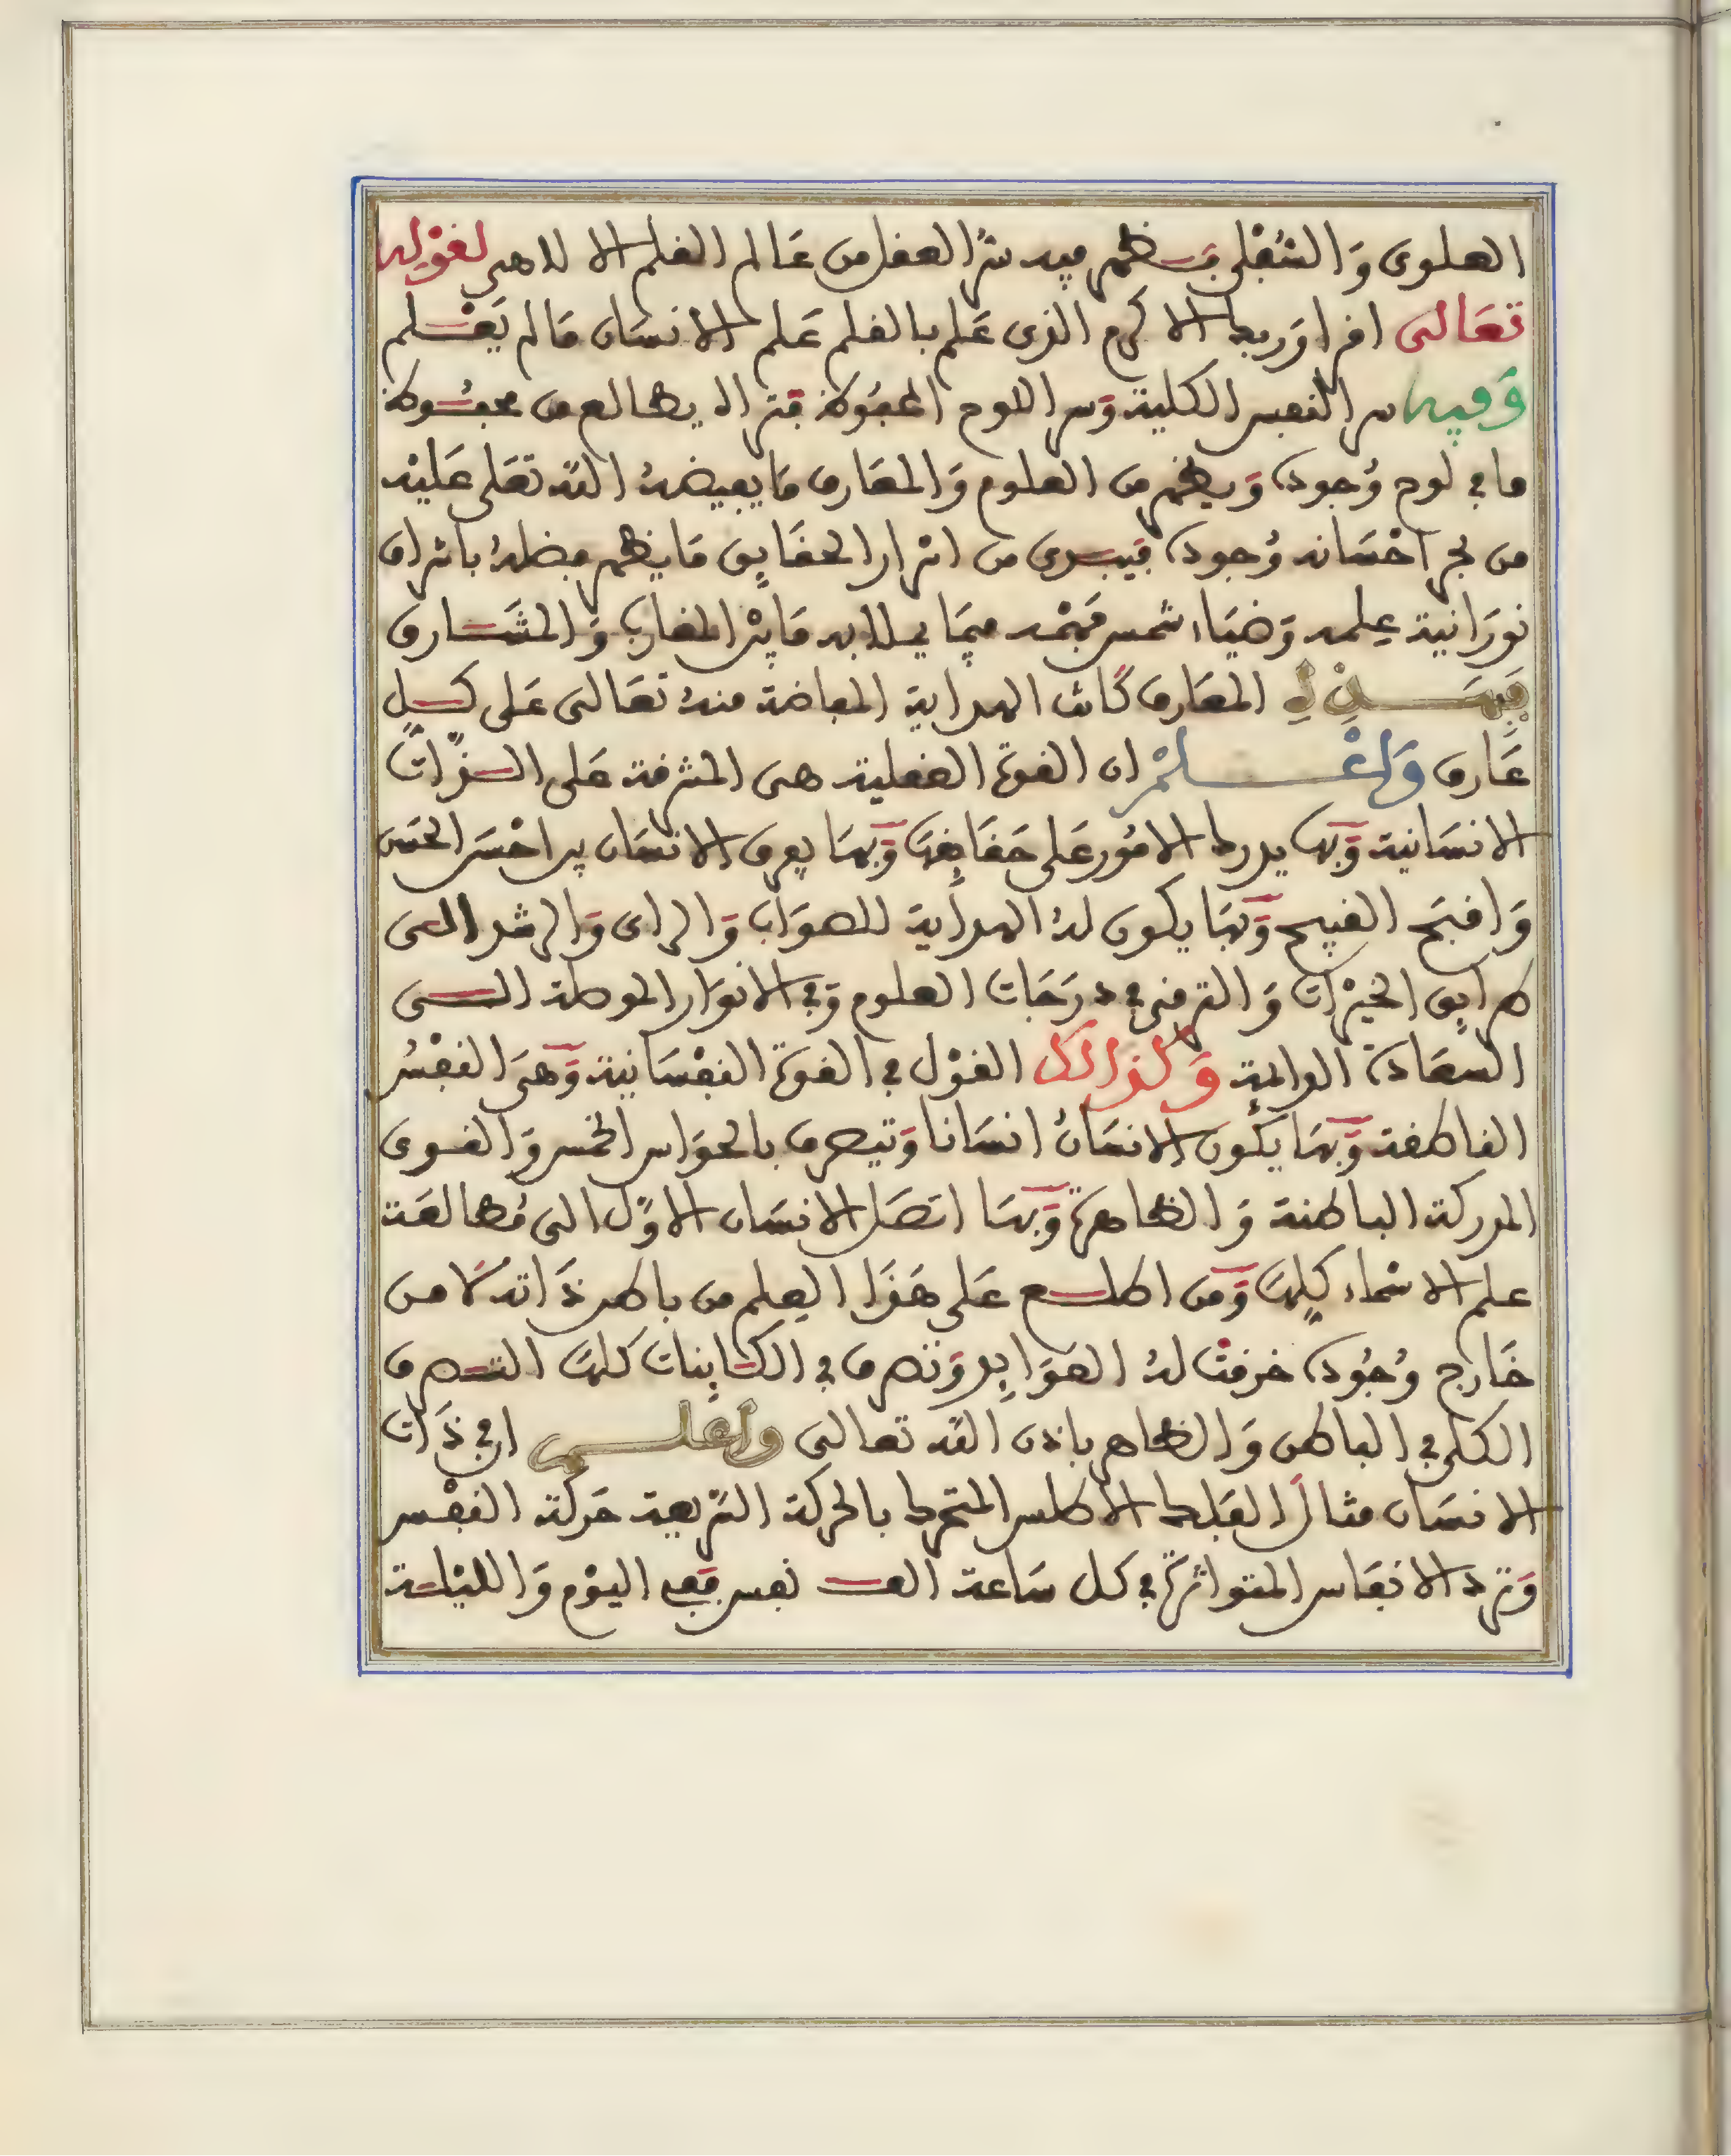 العلوى وَالسُّفْلى فيظهر فيه سرُّ العقل من عَالم القلم الالاهى لقوْلِه
تعَالى اقرا وَربك الاكرم الذى عَلم بالقلم عَلم الانسَان مَا لم يَعْلم
وَفيه سر النفس الكلية وَسر اللوح المحفُوظ فتراه يطالع من محفُوظ
ما في لوح وُجوده وَيظهر من العلوم وَالمعَارف مَا يفيضهُ الله تعَلى عَليْه
من بحر احْسَانه وُجوده فيبدى من اسْرار الحقَايِق مَا يظهر فضلهُ باشراق
نورَانية عِلمه وَضيَاء شمس فهْمه فيمَا يـلا به مَا بيْن المغارب وَالمشَارق
فيهَــذِهِ المعَارف كَانت الهداية المفاضة منهُ تعَالى عَلى كـل
عَارف وَاعْــلمْ ان القوة العقلية هى المشرفة عَلى الـذَّات
الانسَانية وَبهَا يدرك الامُور عَلى حَقَايِقهَا وَبهَا يعرف الانسَان ير احْسَن الحسَن
وَاقبَح القبيح وَبهَا يكون لهُ الهداية للصوَاب وَالراى وَالرشد الى
طرايِق الخيْرات وَالترقى في درَجَات العلوم وَفي الانوَار الموصلة الـى
السعَادة الدايمة وَكذالك القوْل في القوة النفْسَانية وَهىَ النفْسُ
الناطقة وَبهَا يكون الانسَانُ انسَانا وَتتصرف بالحوَاس الخمس وَالقـوى
المدركة الباطنة وَالظاهرة وَبهَا اتصَل الانسَان الاوَّل الى مُطالعَة
علم الاسْماء كلِهَا وَمن اطلـع عَلى هَذَا العِلم من باطن ذَاته لا من
خَارج وُجُوده خرقتْ لهُ العوَايِد وَتصرف في الكـايِنات كلهَا التـصرف
الكلى في الباطن وَالظاهر باذن الله تعالى واعلــم ان في ذَات
الانسَان مثالَ الفلك الاطلس المتحرك بالحركة السَّريعة حَركة النفْس
وَتردد الانفَاس المتواترة في كل سَاعة الف نفس فَفي اليوْم وَالليْلـة